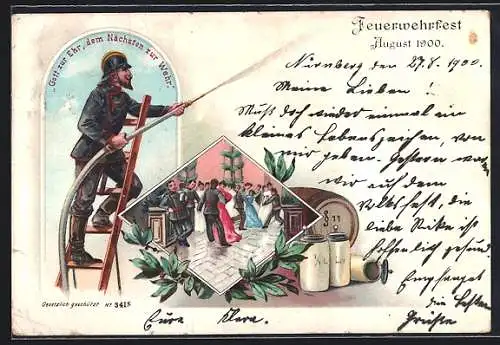 „Gott zur Ehr, dem Nächsten zur Wehr."
Feuerwehrfest
August 1900.
Nürnberg den 27/8. 1900
Meine Lieben!
Muß doch wieder einmal ein
kleines Lebenszeichen, von
mir geben. Gestern war
wir auf dem
Volksfest, die
liebe Rike ist
hoffentlich gesund.
Empfangt
die besten
Grüße
Eure Klara.
§ 11
½ L
Gesetzlich geschützt Nr 3418